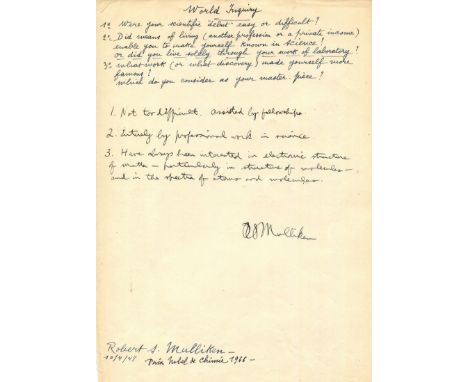 World Inquiry
1º Were your scientific debut easy or difficult?
2º Did means of living (another profession or a private income)
enable you to make yourself known in science
or did you live solely through your work of laboratory?
3º What work (or what discovery) made yourself more
famous?
which do you consider as your master-piece?
1. Not too difficult. Assisted by fellowships
2. Entirely by professional work in science
3. Have always been interested in electronic structure
of matter – particularly in structure of molecules –
and in the spectra of atoms and molecules.
RSMulliken
Robert S. Mulliken –
Prix Nobel de Chimie 1966 –